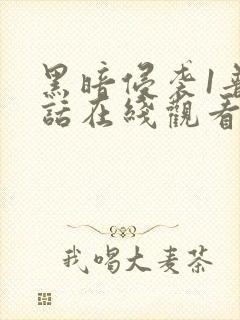 黑暗侵袭1普
話在綫觀看
我喝大麦茶